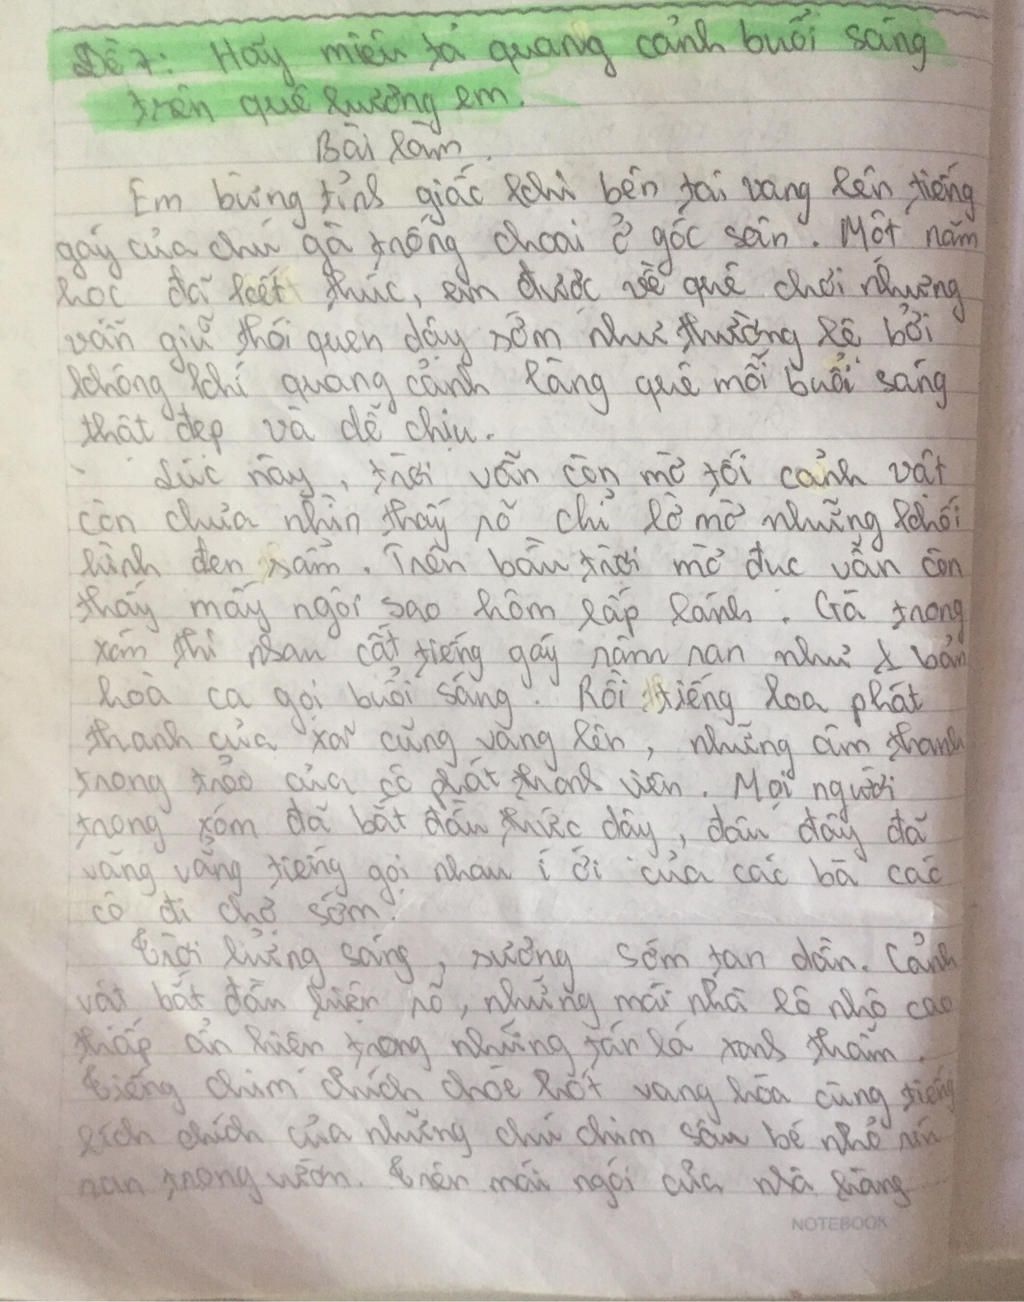 Đề 7: Hãy miêu tả quang cảnh buổi sáng
trên quê hương em.
Bài làm.
Em bừng tỉnh giấc khi bên tai vang lên tiếng
gáy của chú gà trống choai ở góc sân. Một năm
học đã kết thúc, em được về quê chơi nhưng
vẫn giữ thói quen dậy sớm như thường lệ bởi
không khí quang cảnh làng quê mỗi buổi sáng
thật đẹp và dễ chịu.
Lúc này, trời vẫn còn mờ tối cảnh vật
còn chưa nhìn thấy rõ chỉ lờ mờ những khối
hình đen sẫm. Trên bầu trời mờ đục vẫn còn
thấy mấy ngôi sao hôm lấp lánh. Gà trong
xóm thi nhau cất tiếng gáy râm ran như bản
hoà ca gọi buổi sáng. Rồi tiếng loa phát
thanh của xã cũng vang lên, những âm thanh
trong trẻo của cô phát thanh viên. Mọi người
trong xóm đã bắt đầu thức dậy, đâu đây đã
văng vẳng tiếng gọi nhau í ới của các bà các
cô đi chợ sớm.
Trời hửng sáng, sương sớm tan dần. Cảnh
vật bắt đầu hiện rõ, những mái nhà lô nhô cao
thấp ẩn hiện trong những tán lá xanh thẫm.
Tiếng chim chích choè hót vang hòa cùng tiếng
lích chích của những chú chim sâu bé nhỏ ríu
ran trong vườn. Trên mái ngói của nhà hàng
NOTEBOOK